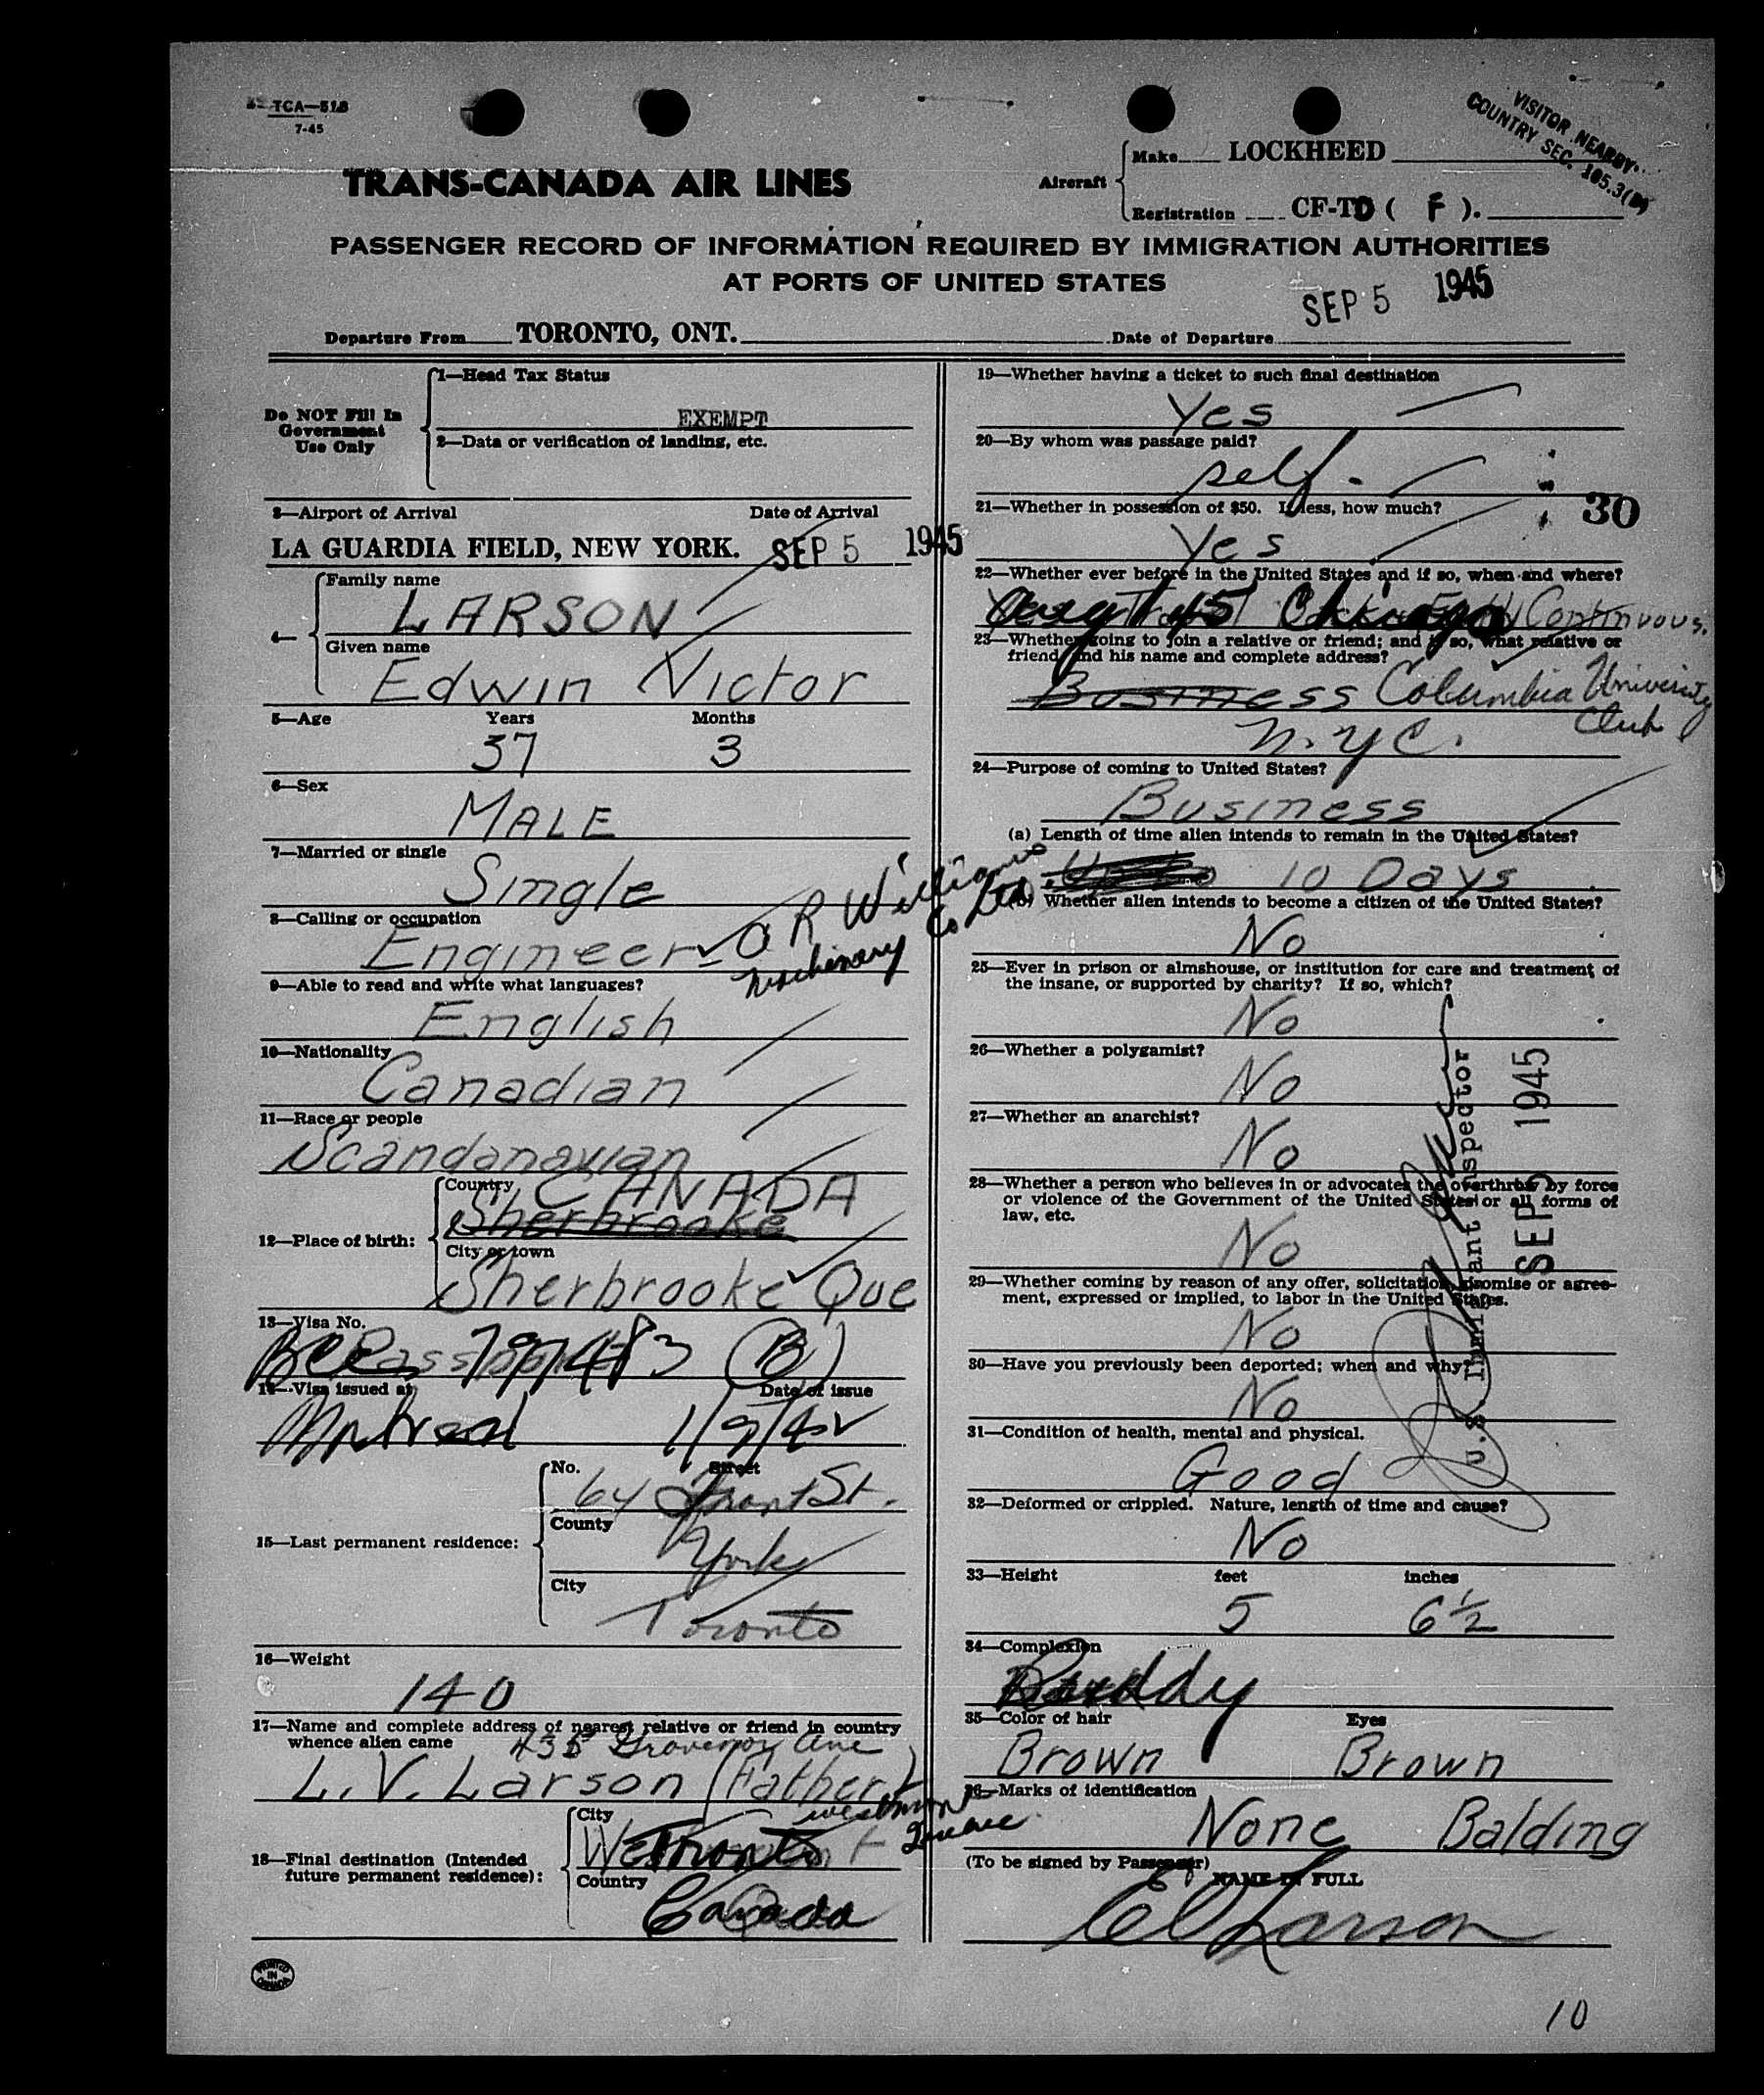 TCA—518
7-45
VISITOR NEARBY
COUNTRY SEC. 165.3(B)
TRANS-CANADA AIR LINES
Aircraft
Make LOCKHEED
Registration CF-TD ( F ).
PASSENGER RECORD OF INFORMATION REQUIRED BY IMMIGRATION AUTHORITIES
AT PORTS OF UNITED STATES
SEP 5 1945
Departure From TORONTO, ONT. Date of Departure
Do NOT Fill In
Government
Use Only
1—Head Tax Status
EXEMPT
2—Data or verification of landing, etc.
3—Airport of Arrival Date of Arrival
LA GUARDIA FIELD, NEW YORK. SEP 5 1945
4—
Family name
LARSON
Given name
Edwin Victor
5—Age Years Months
37 3
6—Sex
MALE
7—Married or single
Single
8—Calling or occupation
Engineer - A R Williams
Machinery Co Ltd
9—Able to read and write what languages?
English
10—Nationality
Canadian
11—Race or people
Scandanavian
12—Place of birth:
Country CANADA
Sherbrooke
City or town
Sherbrooke Que
13—Visa No.
797483 (B)
14—Visa issued at Date of issue
Montreal 1/9/42
15—Last permanent residence:
No. Street
64 Front St.
County
York
City
Toronto
16—Weight
140
17—Name and complete address of nearest relative or friend in country
whence alien came 435 Grovenor Ave
L. V. Larson (Father)
Westmount
Quebec
18—Final destination (Intended
future permanent residence):
City
Toronto
Country
Canada
PRINTED
IN
CANADA
19—Whether having a ticket to such final destination
Yes
20—By whom was passage paid?
self.
21—Whether in possession of $50. If less, how much?
30
Yes
22—Whether ever before in the United States and if so, when and where?
Aug 1945 Chicago Continuous.
23—Whether going to join a relative or friend; and if so, what relative or
friend and his name and complete address?
Business Columbia University
Club
N.Y.C.
24—Purpose of coming to United States?
Business
(a) Length of time alien intends to remain in the United States?
10 Days
(b) Whether alien intends to become a citizen of the United States?
No
25—Ever in prison or almshouse, or institution for care and treatment of
the insane, or supported by charity? If so, which?
No
26—Whether a polygamist?
No
27—Whether an anarchist?
No
28—Whether a person who believes in or advocates the overthrow by force
or violence of the Government of the United States or all forms of
law, etc.
No
29—Whether coming by reason of any offer, solicitation, promise or agree-
ment, expressed or implied, to labor in the United States.
No
30—Have you previously been deported; when and why?
No
U.S. Immigrant Inspector
SEP 5 1945
31—Condition of health, mental and physical.
Good
32—Deformed or crippled. Nature, length of time and cause?
No
33—Height feet inches
5 6½
34—Complexion
Ruddy
35—Color of hair Eyes
Brown Brown
36—Marks of identification
None Balding
(To be signed by Passenger)
NAME IN FULL
E V Larson
10